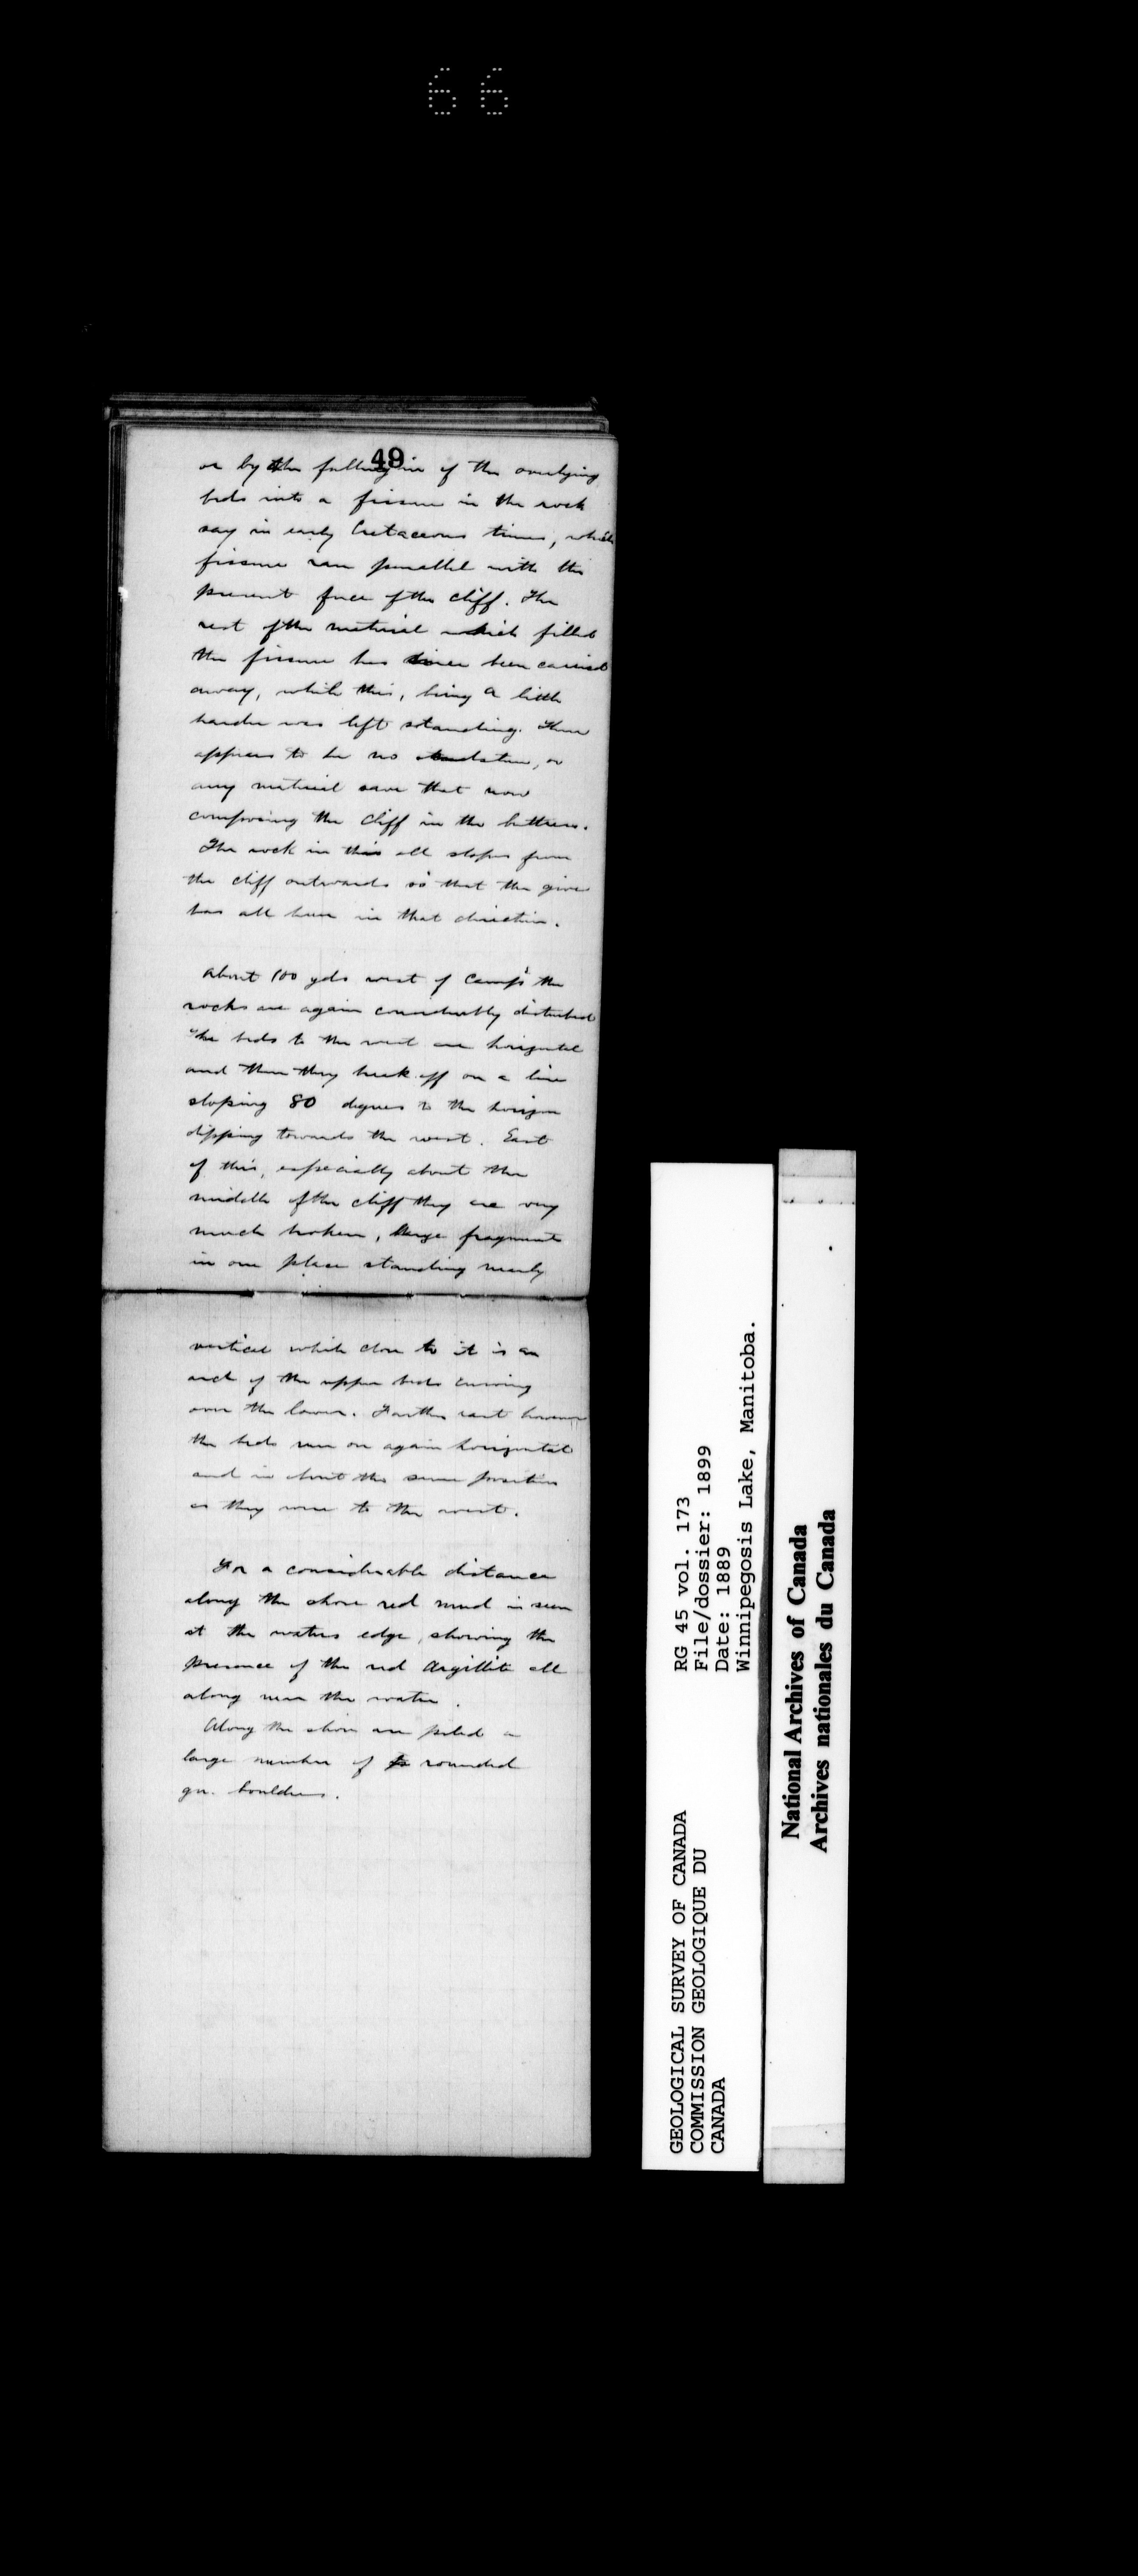 66
49
or by the falling in of the overlying
beds into a fissure in the rock
say in early Cretaceous times, which
fissure ran parallel with the
present face of the cliff. The
rest of the material which filled
the fissure has since been carried
away, while this, being a little
harder was left standing. There
appears to be no or
any material save that now
composing the cliff in the buttress.
The rock in this all slopes from
the cliff outwards so that the
has all been in that direction.
About 100 yds west of Camp the
rocks are again considerably disturbed
The beds to the west are horizontal
and then they break off on a line
sloping 80 degrees to the horizon
dipping towards the west. East
of this, especially about the
middle of the cliff they are very
much broken, large fragments
in one place standing nearly
vertical while close to it is an
arch of the upper beds curving
over the lower. Farther east however
the beds run on again horizontal
and in about the same position
as they were to the west.
For a considerable distance
along the shore red mud is seen
at the waters edge, showing the
presence of the red Argillite all
along near the water.
Along the shore are piled a
large number of rounded
gn. boulders.
GEOLOGICAL SURVEY OF CANADA
COMMISSION GEOLOGIQUE DU
CANADA
RG 45 vol. 173
File/dossier: 1899
Date: 1889
Winnipegosis Lake, Manitoba.
National Archives of Canada
Archives nationales du Canada